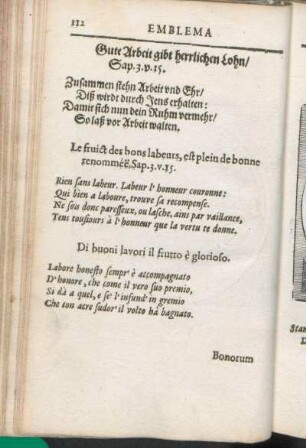 132
EMBLEMA
Gute Arbeit gibt herrlichen Lohn/
Sap.3.v.15.
Zusammen stehn Arbeit vnd Ehr/
Diß wirdt durch Jens erhalten:
Damit sich nun dein Ruhm vermehr/
So laß vor Arbeit walten.
Le fruict des bons labeurs, est plein de bonne
renommée. Sap.3.v.15.
Rien sans labeur. Labeur l'honneur couronne:
Qui bien a laboure, trouve sa recompense.
Ne sois donc paresseux, ou lasche, ains par vaillance,
Tens tousiours à l'honneur que la vertu te donne.
Di buoni lavori il frutto è glorioso.
Labore honesto sempr' è accompagnato
D'honore, che come il vero suo premio,
Si dà a quel, e se l'infund' in gremio
Che con acre sudor' il volto hà bagnato.
Bonorum